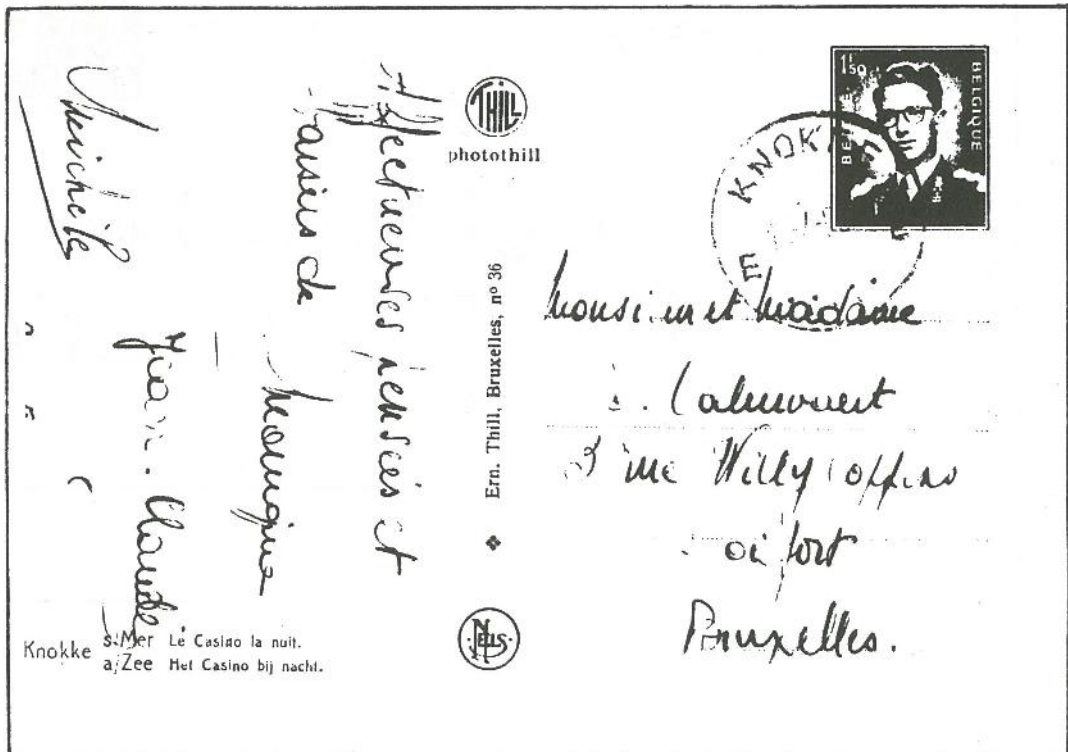 Affectueuses pensées et
baisers de
Monique
Jean-Claude
Michèle
THILL
photothill
Ern. Thill, Bruxelles, nº 36
NELS
Knokke s/Mer Le Casino la nuit.
a/Zee Het Casino bij nacht.
1,50
BELGIQUE
KNOKKE
Monsieur et Madame
Calmouert
3 rue Willy Coppens
Bruxelles.